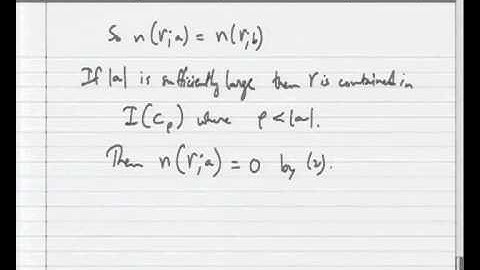 So n(γ;a) = n(γ;b)
If |a| is sufficiently large then γ is contained in
I(Cρ) where ρ < |a|.
Then n(γ;a) = 0 by (2).